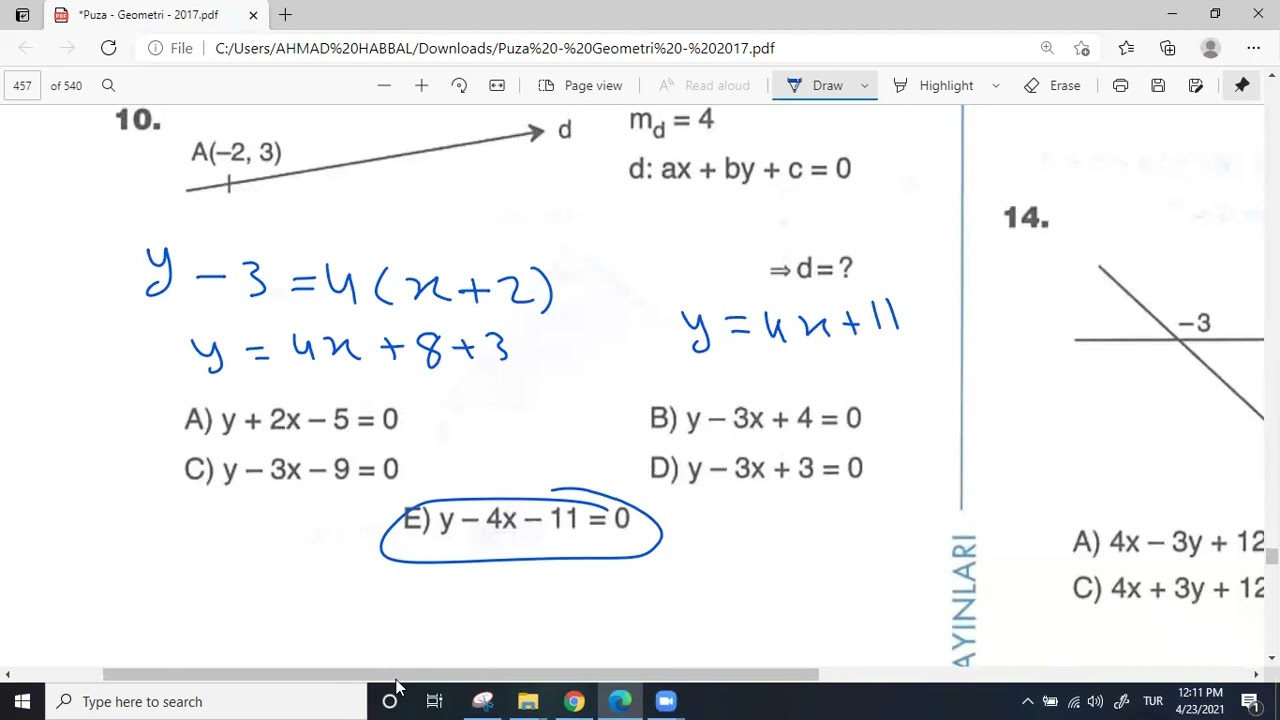 *Puza - Geometri - 2017.pdf
File C:/Users/AHMAD%20HABBAL/Downloads/Puza%20-%20Geometri%20-%202017.pdf
457 of 540 Page view Read aloud Draw Highlight Erase
10.
A(–2, 3)
d
m_d = 4
d: ax + by + c = 0
⇒ d = ?
y - 3 = 4(x+2)
y = 4x + 8 + 3
y = 4x + 11
A) y + 2x – 5 = 0
B) y – 3x + 4 = 0
C) y – 3x – 9 = 0
D) y – 3x + 3 = 0
E) y – 4x – 11 = 0
14.
–3
A) 4x – 3y + 12
C) 4x + 3y + 12
AYINLARI
Type here to search
TUR
12:11 PM
4/23/2021
1